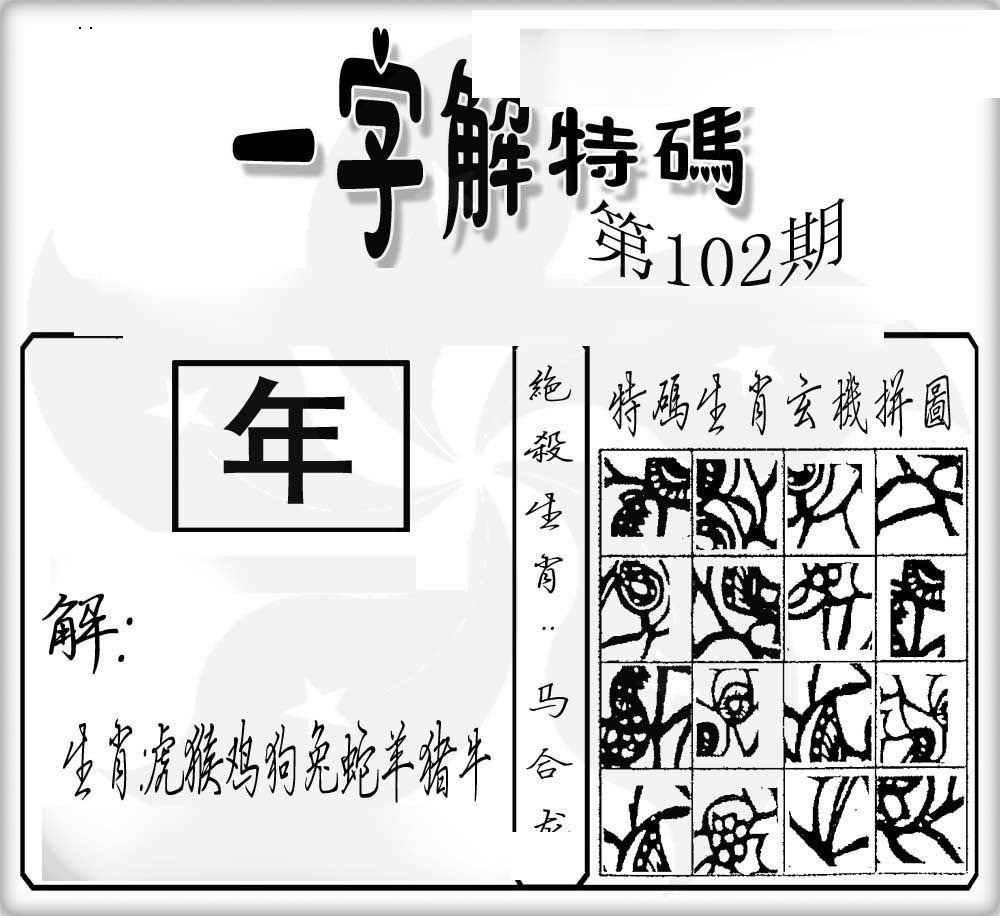 一字解特碼
第102期
年
解:
生肖:虎猴鸡狗兔蛇羊猪牛
絶殺生肖:马合龙
特碼生肖玄機拼圖